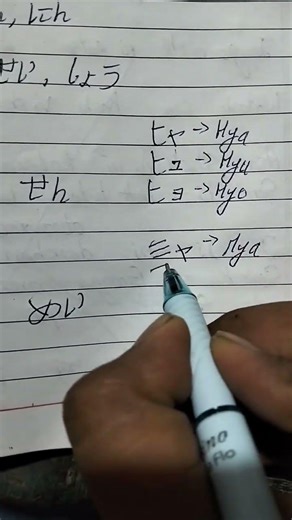 , にん
せい, しょう
ヒャ → Hya
ヒュ → Hyu
せん ヒョ → Hyo
ミャ → Mya